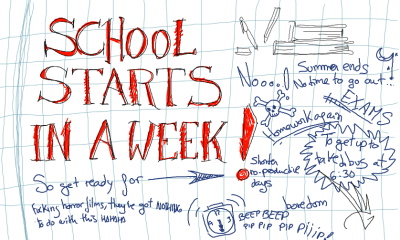 SCHOOL
STARTS
IN A WEEK!
Nooo..!
Summer ends
No time to go out..
EXAMS
Homework again
To get up to
take a bus at
6:30
Shorter
re-productive
days
So get ready for
Fucking horror films, they've got NOTHING
to do with this HAHAHA
boredom
BEEP BEEP
PIP PIP PIP Piiip!